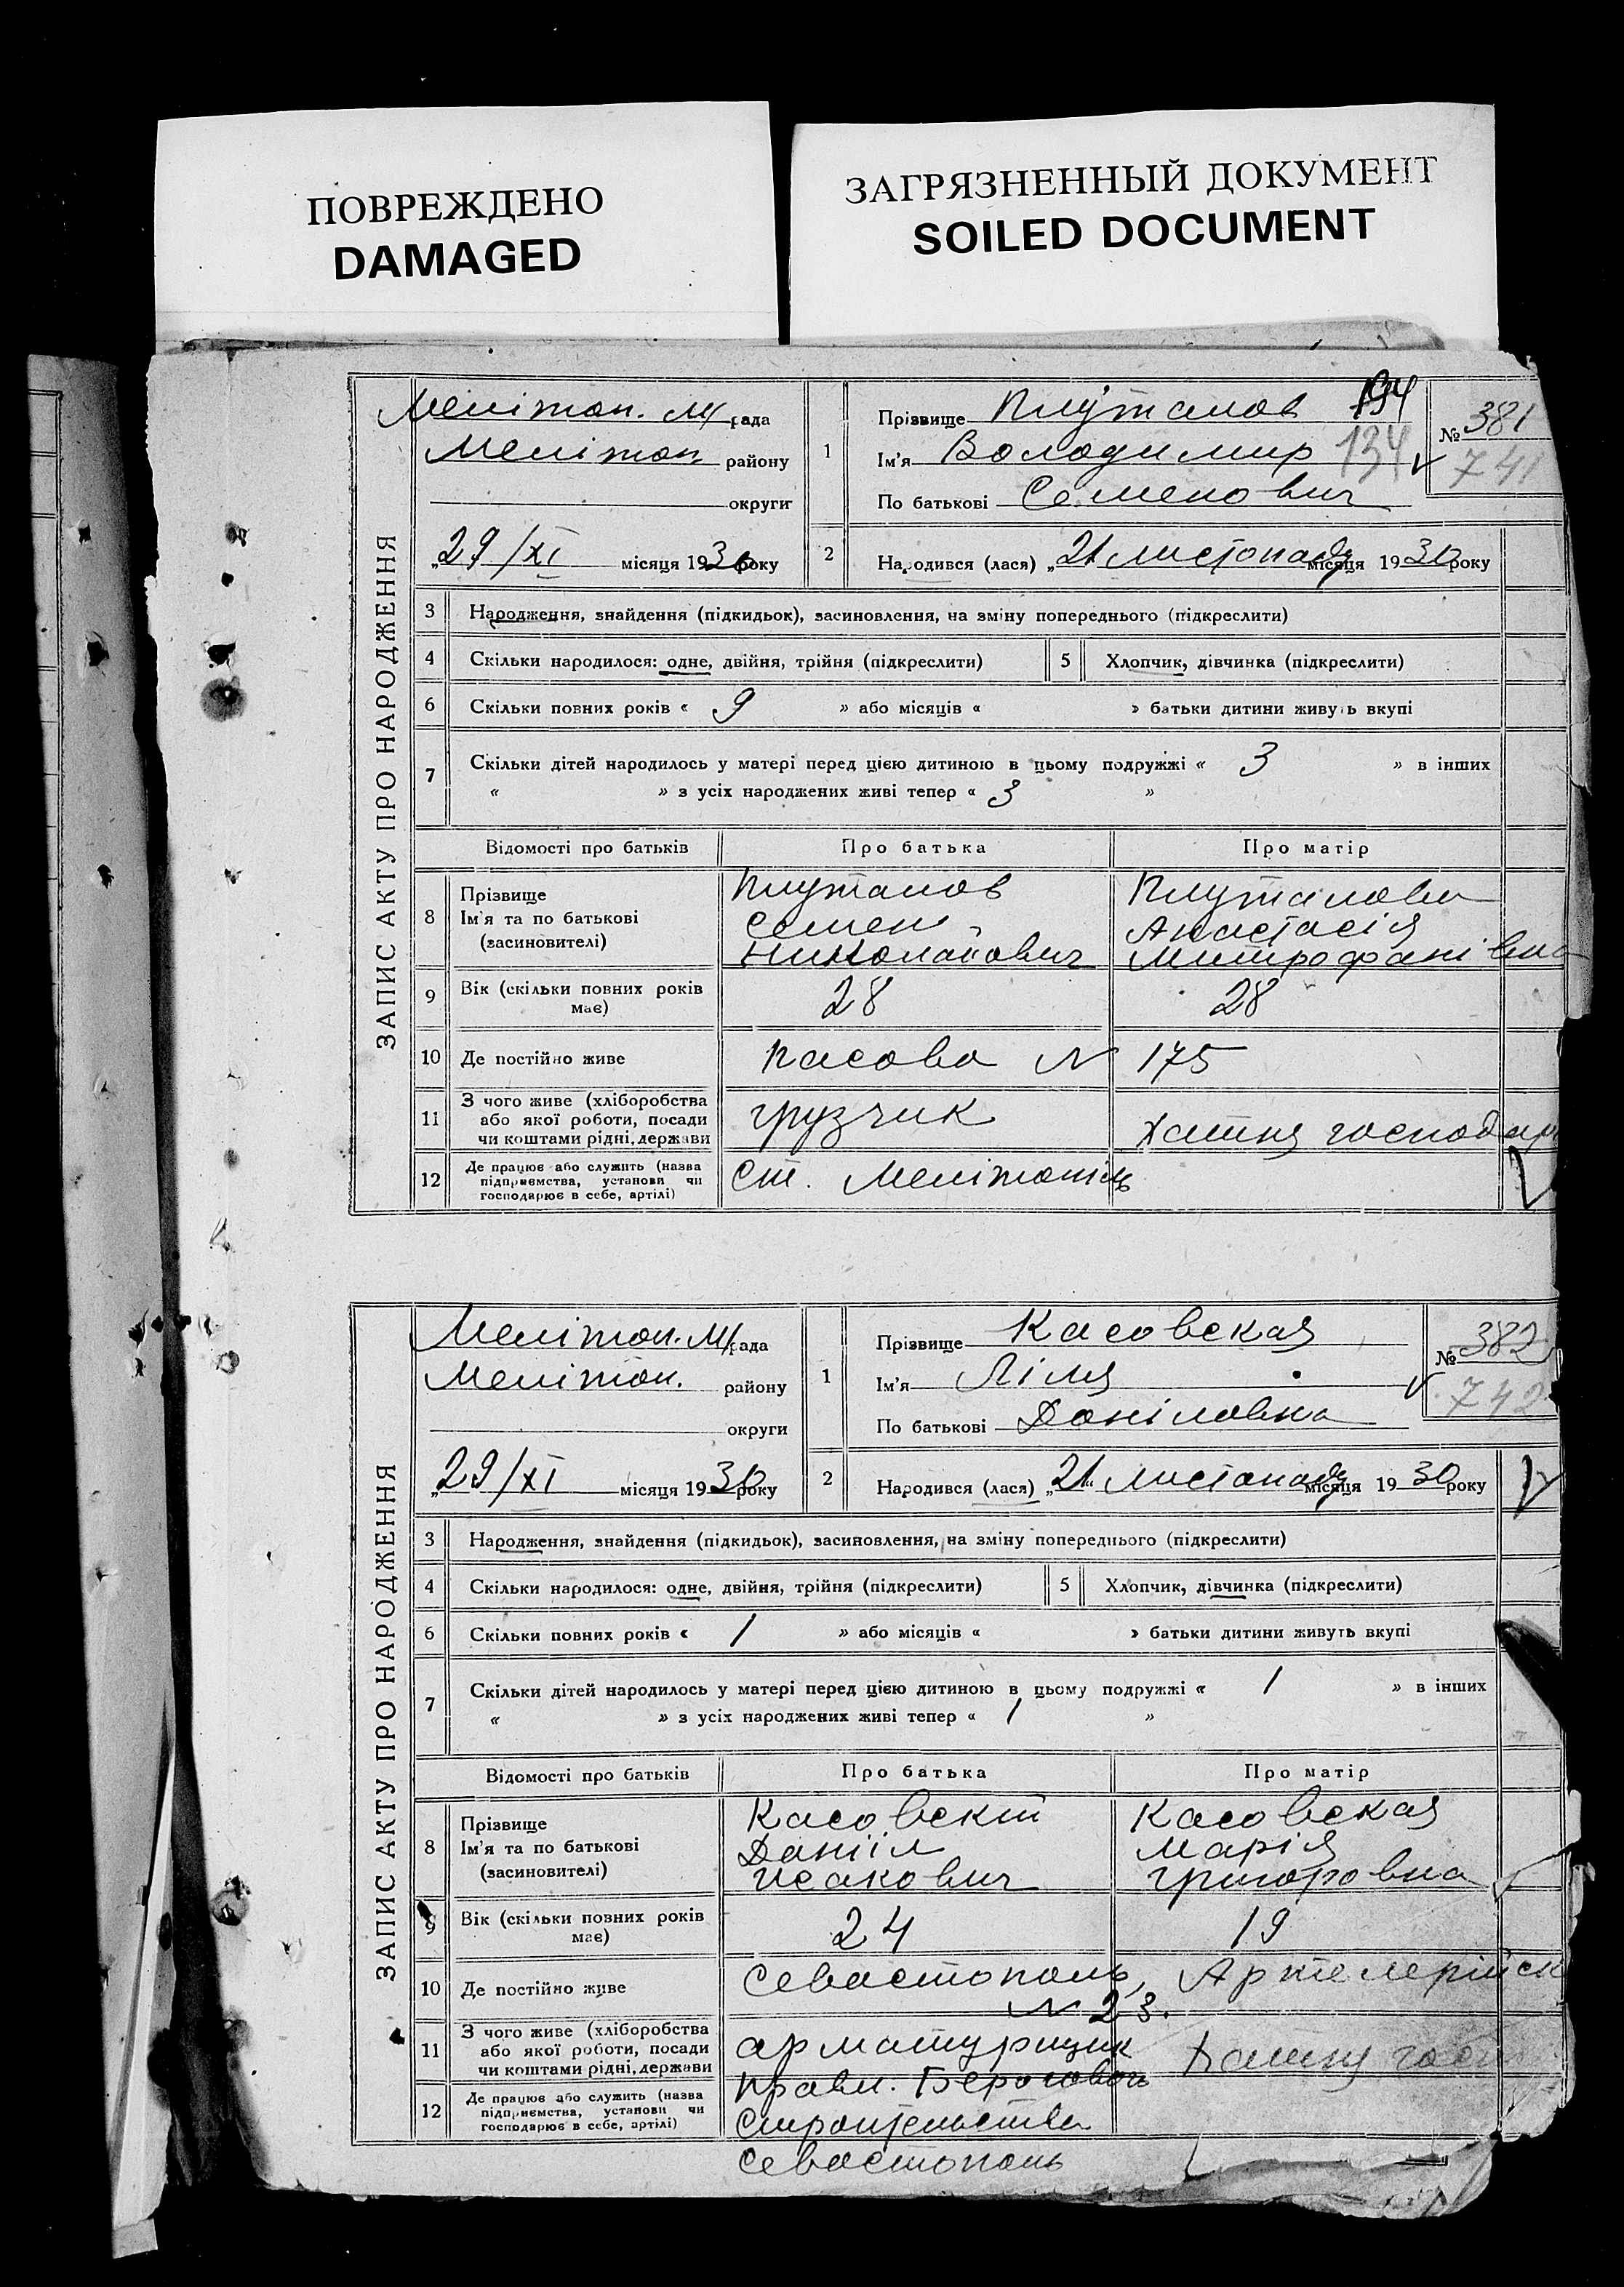 ПОВРЕЖДЕНО
DAMAGED
ЗАГРЯЗНЕННЫЙ ДОКУМЕНТ
SOILED DOCUMENT
ЗАПИС АКТУ ПРО НАРОДЖЕННЯ
Меліт оп. М/рада
Мелітоп. району
округи
„29/XI місяця 1930 року
1
Прізвище Плуталов
Ім'я Володимир 134
По батькові Семенович
№ 381
741
2
Народився (лася) „21 листопаду місяця 1930 року
3 Народження, знайдення (підкидьок), засиновлення, на зміну попереднього (підкреслити)
4 Скільки народилося: одне, двійня, трійня (підкреслити)
5 Хлопчик, дівчинка (підкреслити)
6 Скільки повних років « 9 » або місяців « » батьки дитини живуть вкупі
7 Скільки дітей народилось у матері перед цією дитиною в цьому подружжі « 3 » в інших
« » з усіх народжених живі тепер « 3 »
Відомості про батьків Про батька Про матір
8 Прізвище
Ім'я та по батькові
(засиновителі)
Плуталов
Семен
Николайович
Плуталова
Анастасія
Митрофанівна
9 Вік (скільки повних років має) 28 28
10 Де постійно живе Пасова № 175
11 З чого живе (хліборобства
або якої роботи, посади
чи коштами рідні, держави
грузчик
Хатня господар
12 Де працює або служить (назва
підприємства, установи чи
господарює в себе, артілі)
Ст. Мелітопіль
ЗАПИС АКТУ ПРО НАРОДЖЕННЯ
Мелітоп. М/рада
Мелітоп. району
округи
„29/XI місяця 1930 року
1
Прізвище Касовская
Ім'я Ліля
По батькові Даніловна
№ 382
742
2
Народився (лася) „21 листопаду місяця 1930 року
3 Народження, знайдення (підкидьок), засиновлення, на зміну попереднього (підкреслити)
4 Скільки народилося: одне, двійня, трійня (підкреслити)
5 Хлопчик, дівчинка (підкреслити)
6 Скільки повних років « 1 » або місяців « » батьки дитини живуть вкупі
7 Скільки дітей народилось у матері перед цією дитиною в цьому подружжі « 1 » в інших
« » з усіх народжених живі тепер « 1 »
Відомості про батьків Про батька Про матір
8 Прізвище
Ім'я та по батькові
(засиновителі)
Касовский
Данііл
Исакович
Касовская
Марія
Григоровна
9 Вік (скільки повних років має) 24 19
10 Де постійно живе Севастополь, Артелерійск
№ 23.
11 З чого живе (хліборобства
або якої роботи, посади
чи коштами рідні, держави
арматурщик
Хатню госп
12 Де працює або служить (назва
підприємства, установи чи
господарює в себе, артілі)
Правл. Берегового
Строительства
Севастополь